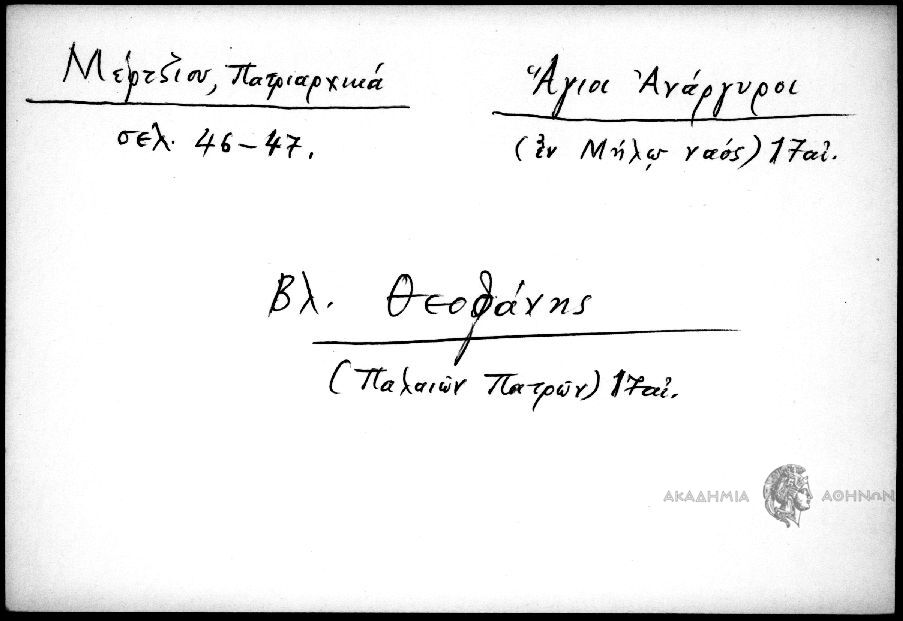 Μέρτζιου, Πατριαρχικά
σελ. 46-47.
Ἅγιοι Ἀνάργυροι
(ἐν Μήλῳ ναός) 17αἰ.
Βλ. Θεοφάνης
(Παλαιῶν Πατρῶν) 17αἰ.
ΑΚΑΔΗΜΙΑ ΑΘΗΝΩΝ